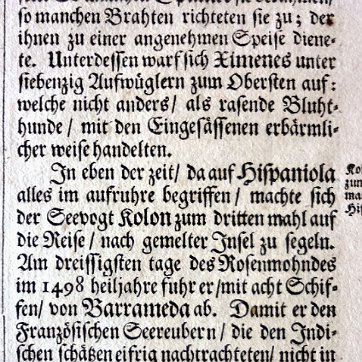 so manchen Brahten richteten sie zu; der
ihnen zu einer angenehmen Speise diene-
te. Unterdessen warf sich Ximenes unter
siebenzig Aufwüglern zum Obersten auf:
welche nicht anders/ als rasende Bluht-
hunde/ mit den Eingesässenen erbärmli-
cher weise handelten.
In eben der zeit/ da auf Hispaniola
alles im aufruhre begriffen/ machte sich
der Seevogt Kolon zum dritten mahl auf
die Reise/ nach gemelter Insel zu segeln.
Am dreissigsten tage des Rosenmohndes
im 1498 heiljahre fuhr er/ mit acht Schif-
fen/ von Barrameda ab. Damit er den
Französischen Seereubern/ die den Indi-
schen schätzen eifrig nachtrachteten/ nicht in